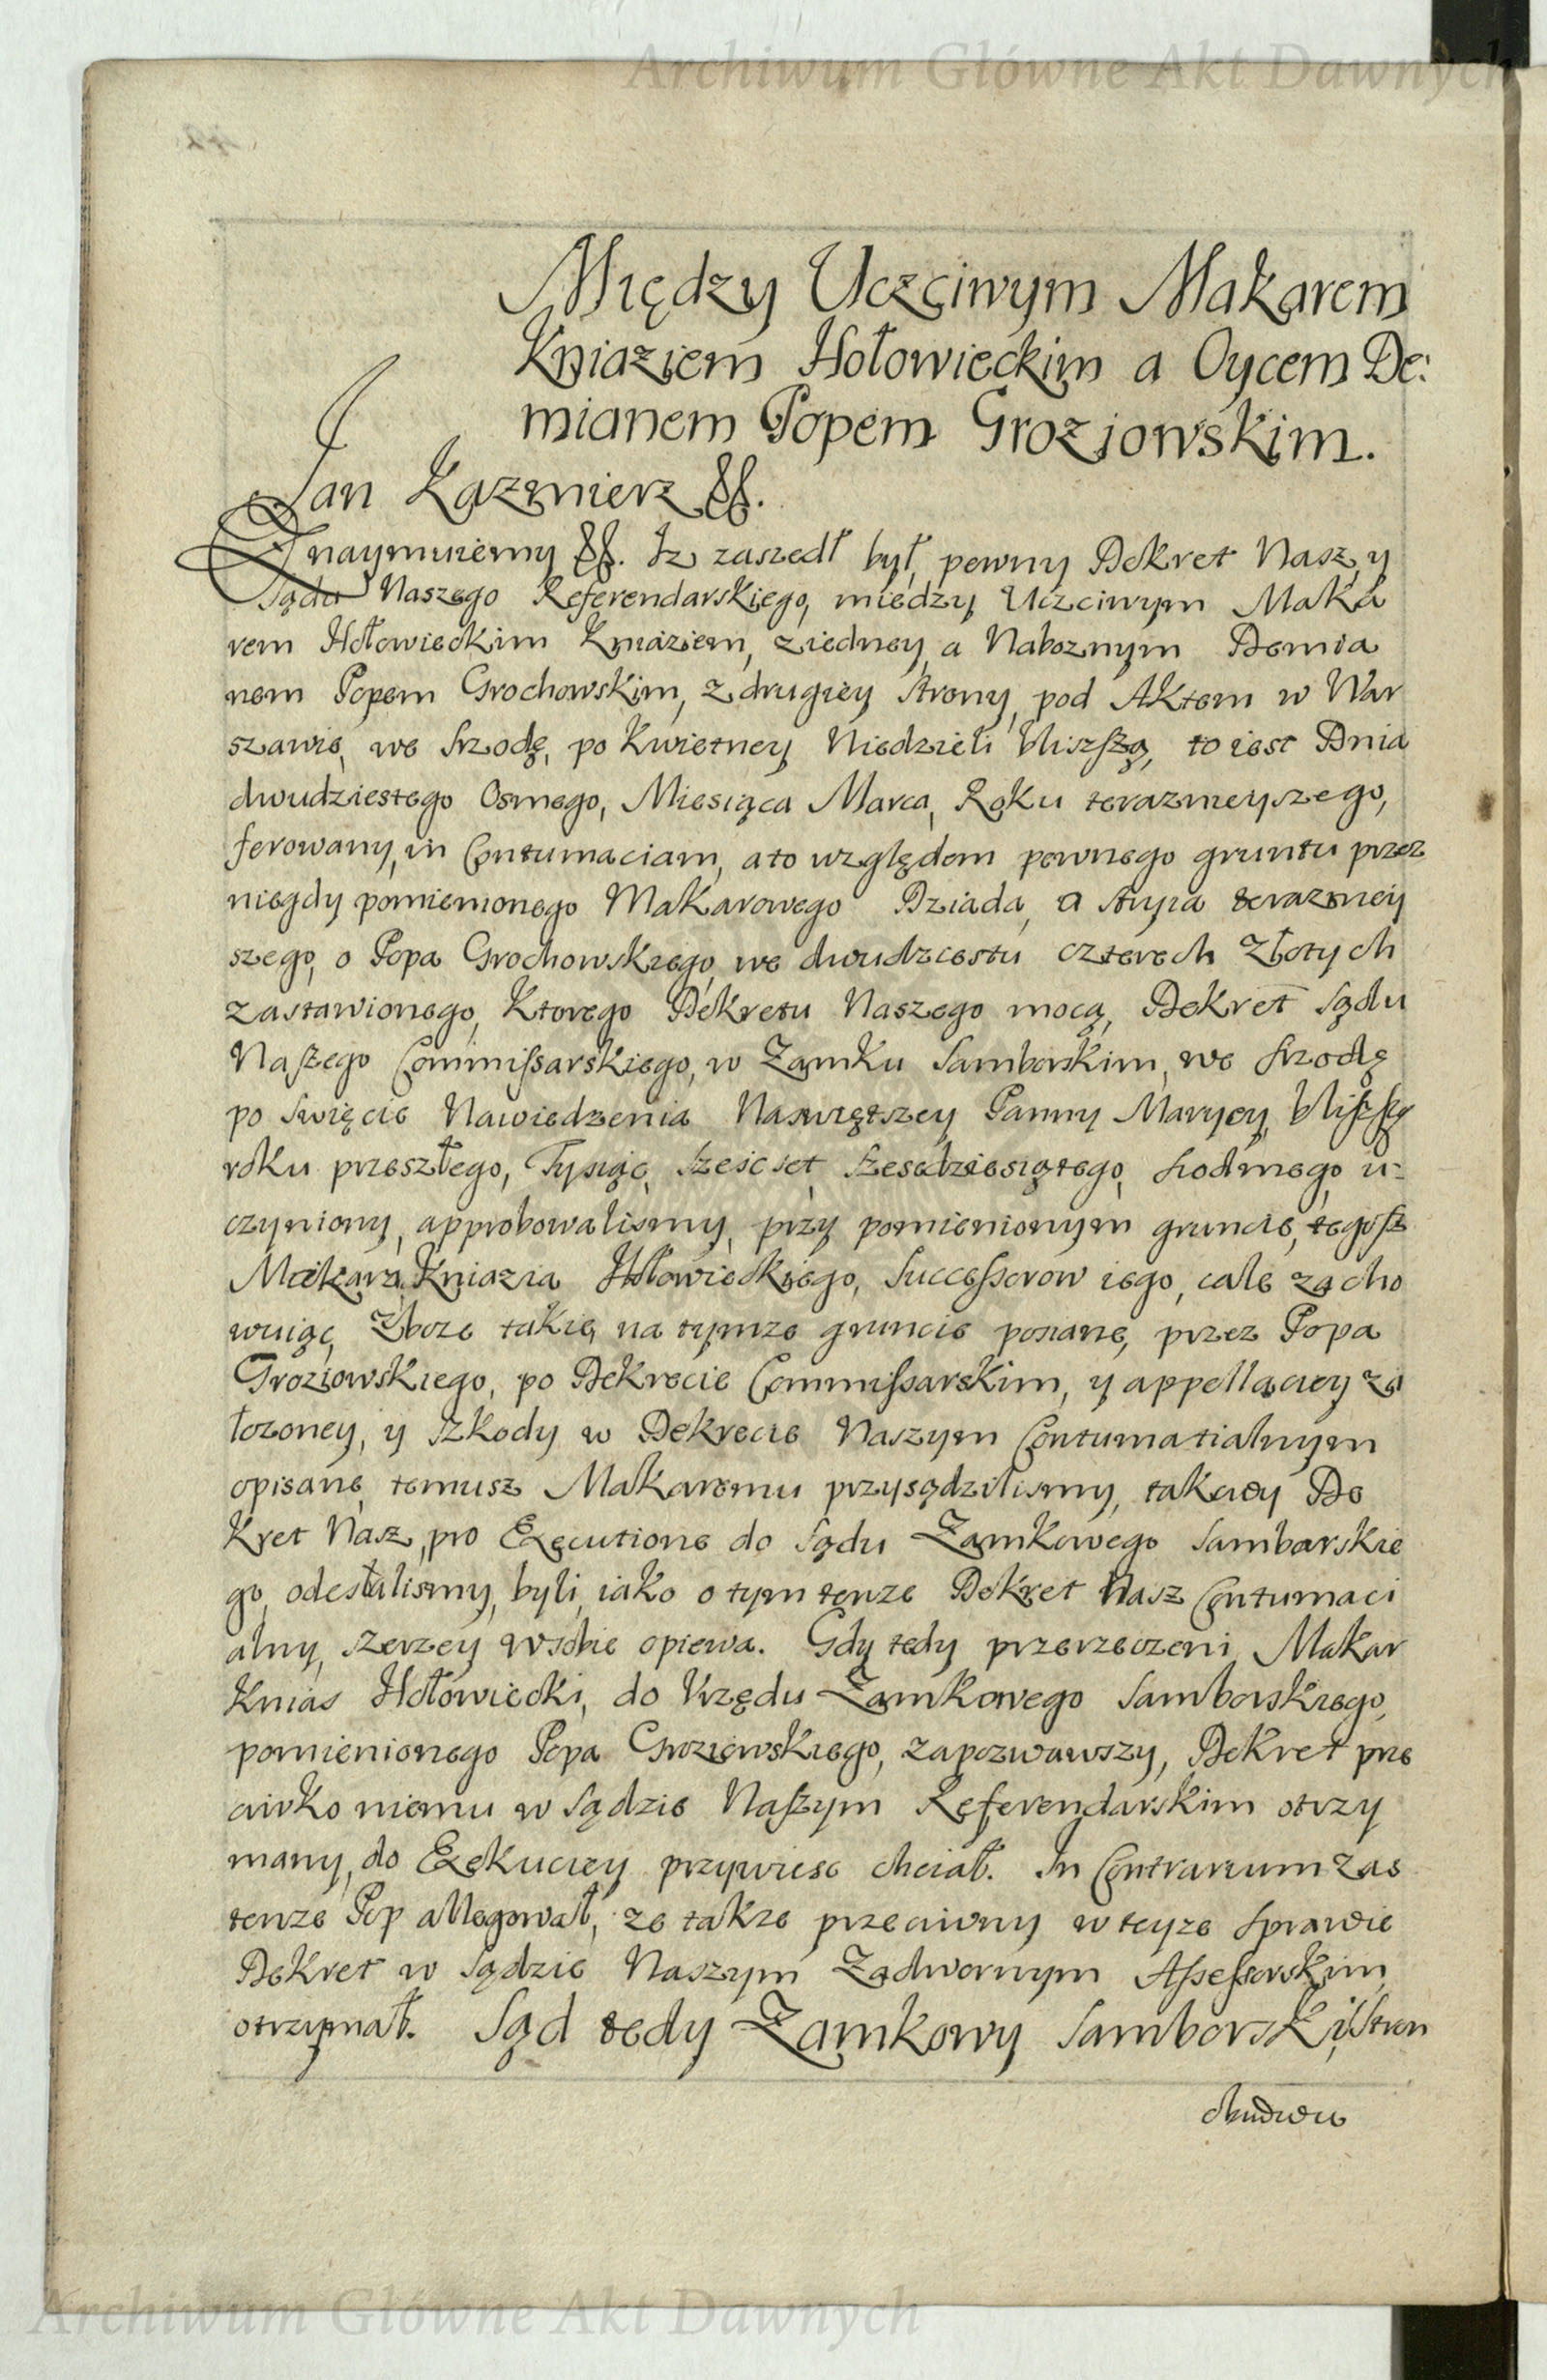 Archiwum Główne Akt Dawnych
Między Uczciwym Makarem
Kniaziem Hołowieckim a Oycem De:
mianem Popem Grozjowskim.
Jan Kazimierz &&.
Znaymuiemy &&. Iz zaszedł był, pewny Dekret Nasz, y
Sądu Naszego Referendarskiego, miedzy Uczciwym Maka
rem Hołowieckim Kniaziem, z iedney, a Naboznym Demia
nem Popem Grochowskim, z drugiey strony, pod Aktem w War
szawie, we srzodę, po Kwietney Niedzieli bliszszą, to iest Dnia
dwudziestego Osmego, Miesiąca Marca, Roku terazneyszego,
ferowany, in Contumaciam, a to względem pewnego gruntu przez
niegdy pomienionego Makarowego Dziada, a stryia terazniey
szego, o Popa Grochowskiego, we dwudziestu czterech Złotych
zastawionego, Ktorego Dekretu Naszego mocą, Dekret sądu
Naszego Commissarskiego, w Zamku Samborskim, we srzodę
po swięcie Nawiedzenia Naswiętszey Panny Maryey, bliszszą
roku przeszłego, Tysiąc, szescset, szesedziesiątego, siodmego, u-
czyniony, approbowalismy, przy pomienionym gruncie, tegosz
Makara Kniazia Hołowieckiego, successorow iego, cale zacho
wuiąc, Zboze takie, na tymze gruncie posiane, przez Popa
Groziowskiego, po Dekrecie Commissarskim, y appellaciey za
łozoney, y szkody w Dekrecie Naszym Contumatialnym
opisane, temusz Makaremu przysądzilismy, takowy De
kret Nasz, pro Executione do sądu Zamkowego Samborskie
go, odesłalismy, byli, iako o tym tenze Dekret Nasz Contumaci
alny, szerzey w sobie opiewa. Gdy tedy przerzeczeni Makar
Knias Hołowiecki, do Urzędu Zamkowego Samborskiego,
pomienionego Popa Groziowskiego, zapozwawszy, Dekret prze
ciwko niemu w sądzie Naszym Referendarskim otrzy
many, do Exekuciey przywiesc chciał. In Contrarium zas
tenze Pop allegował, ze takze przeciwny w teyze sprawie
Dekret w sądzie Naszym Zadwornym Assessorskim,
otrzymał. Sąd tedy Zamkowy Samborski, stron
obudwu
Archiwum Główne Akt Dawnych